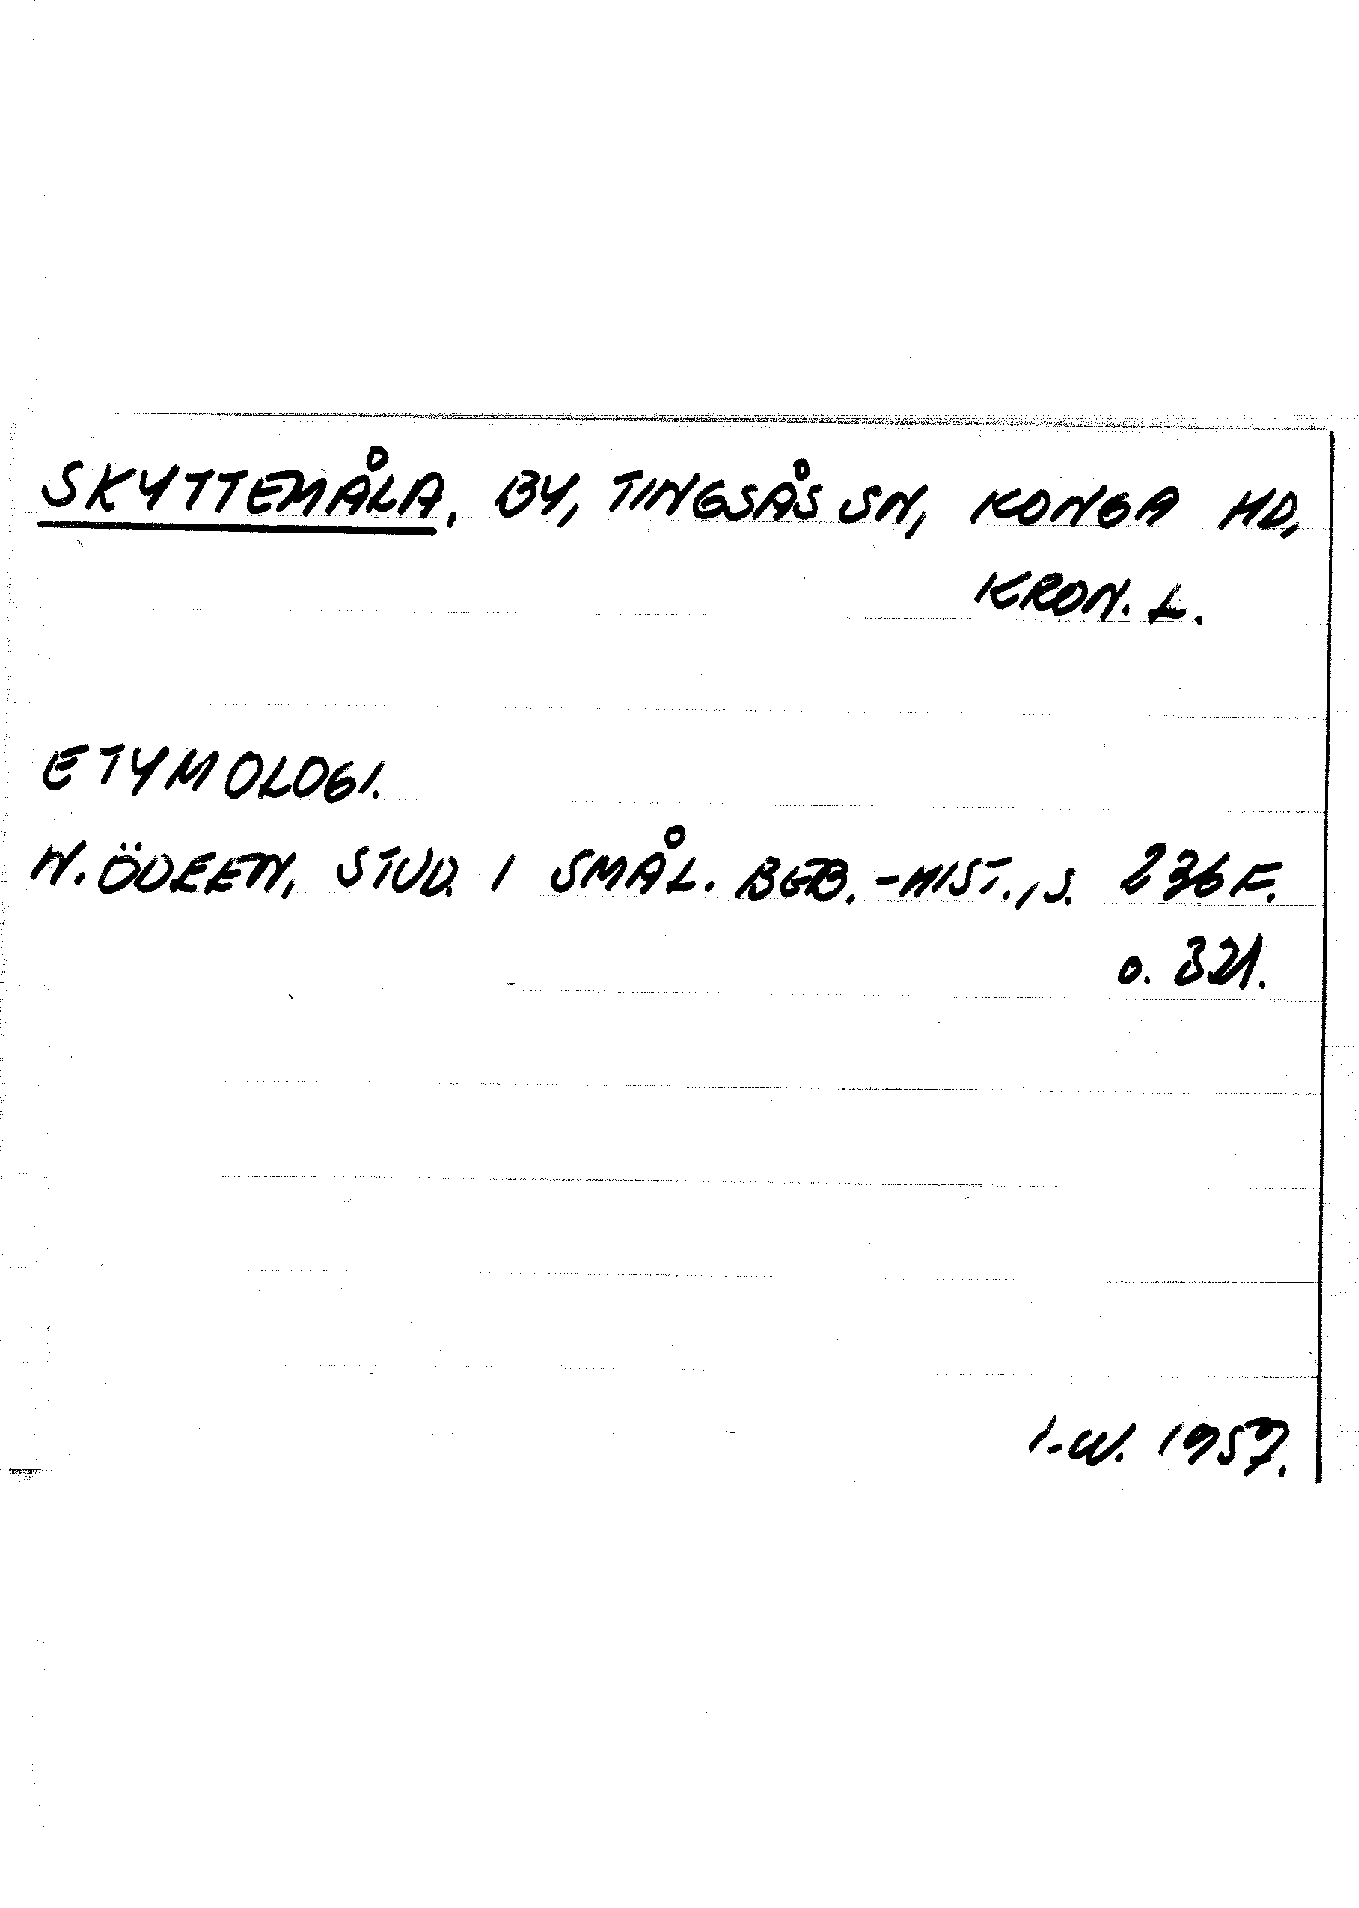 SKYTTEMÅLA, BY, TINGSÅS SN, KONGA HD,
KRON. L.
ETYMOLOGI.
N. ÖDEEN, STUD. I SMÅL. BEB.-HIST., S. 236 F.
O. 321.
I-W. 1957.